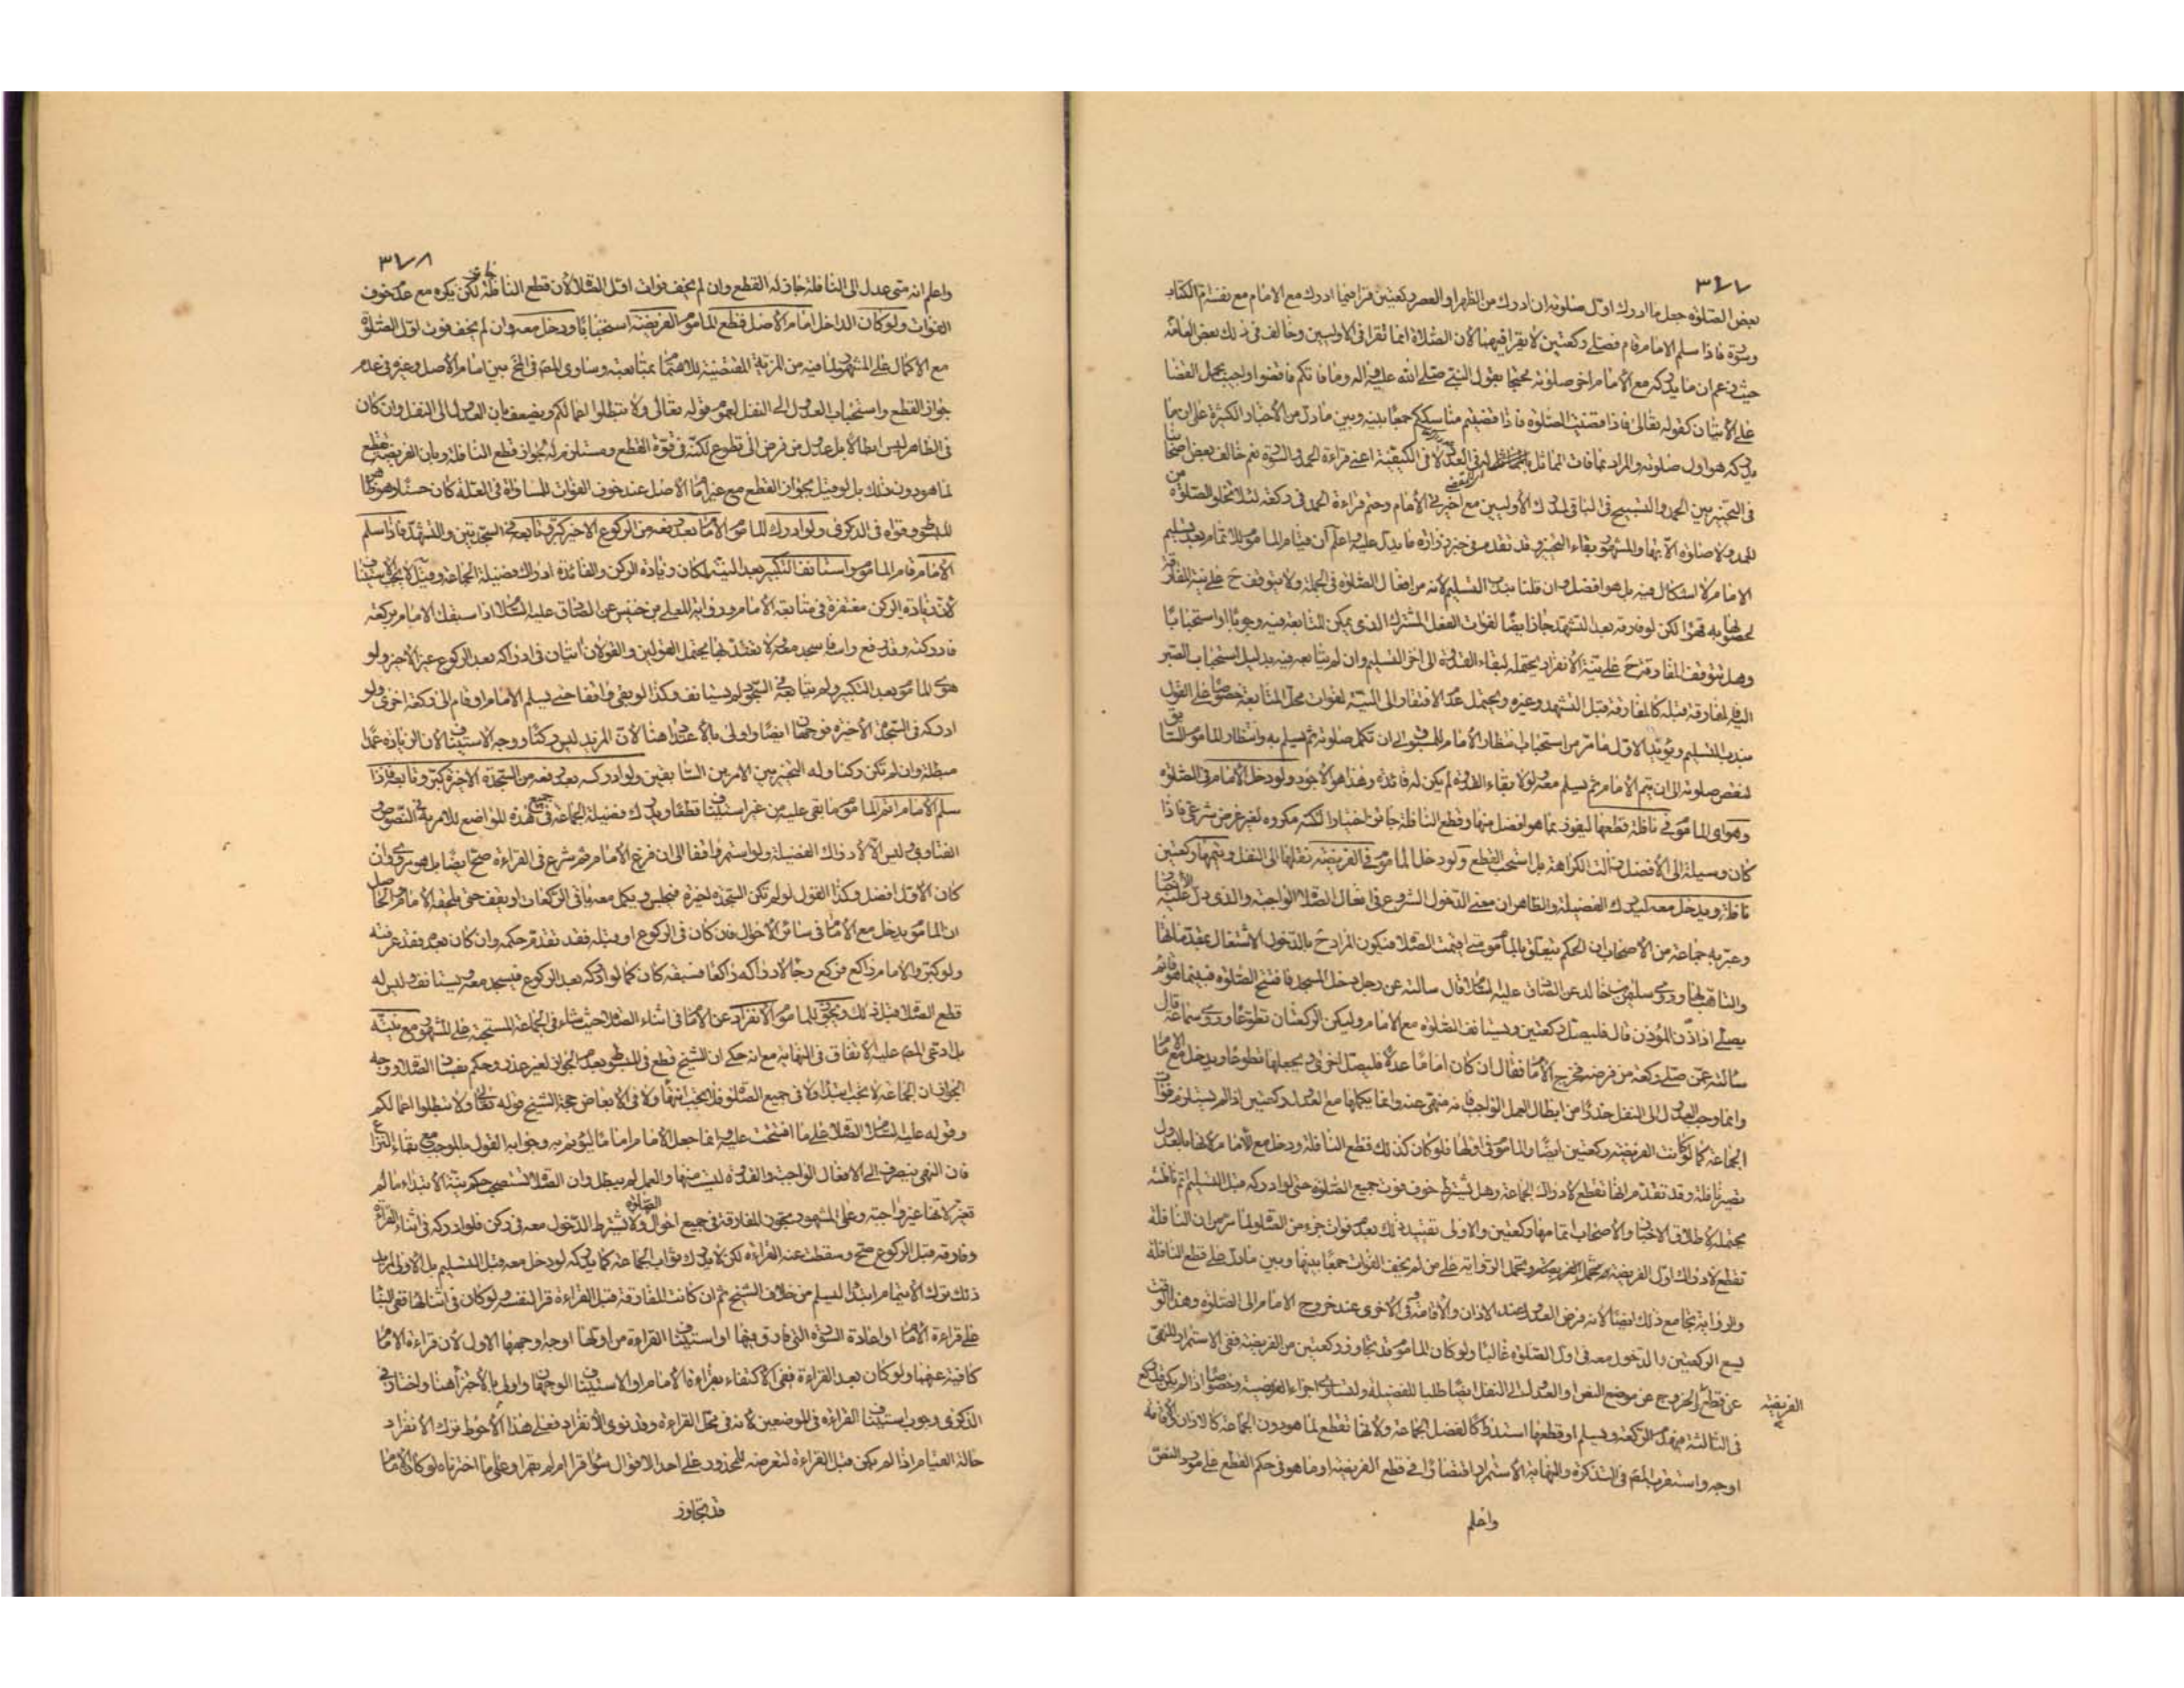 ٣٧٧
بعض الصلوة جعل ما ادرك اول صلوته ان ادرك من الظهر او العصر ركعتين قرا فيما ادرك مع الامام مع نفسه ام الكتاب
وسورة فاذا سلم الامام قام فصلى ركعتين لا يقرا فيهما لأن الصلاة انما تقرا في الاوليين وخالف في ذلك بعض العامة
حيث زعم ان ما يدركه مع الامام اخر صلوته محتجا بقول النبي صلى الله عليه واله وما فاتكم فاقضوا واجيب بحمل القضا
على الاتيان كقوله تعالى فاذا قضيت الصلوة فاذا قضيتم مناسككم جمعا بينه وبين ما دل من الأخبار الكثيرة على ان ما
يدركه هو اول صلوته والمراد بما فات التماثل في العدد لا في الكيفية اعنى قراءة الحمد والسورة نعم خالف بعض اصحابنا
في التخيير بين الحمد والتسبيح في الباقي لمدرك الأوليين مع اخيرتي الأمام وحتم قراءة الحمد في ركعة لئلا تخلو الصلوة من
الحمد ولا صلوة الا بها والمشهور بقاء التخيير وقد تقدم في خبر زرارة ما يدل عليه واعلم ان قيام الماموم للاتمام بعد تسليم
الامام لا اشكال فيه بل هو افضل وان قلنا بندب التسليم لأنه من افعال الصلوة في الجملة ولا يتوقف ح على نية المفارقة
لحصولها به قهرا لكن لو فارقه بعد التشهد جاز ايضا لفوات الفعل المشترك الذي يمكن المتابعة فيه وجوبا او استحبابا
وهل تتوقف المفارقة ح على نية الانفراد يحتمله لبقاء القدوة الى اخر التسليم وان لم يتابعه فيه بدليل استحباب الصبر
اليه فالمفارقة قبله كالمفارقة قبل التشهد وغيره ويحتمل عدم الافتقار الى النية لفوات محل المتابعة خصوصا على القول
بندب التسليم ويؤيد الاول ما مر من استحباب انتظار الأمام المسبوق الى ان تكمل صلوته ثم يسلم به وانتظار الماموم السابق
لنقص صلوته الى ان يتم الامام ثم يسلم معه ولولا بقاء القدوة لم يكن له فائدة وهذا هو الأجود ولو دخل الأمام في الصلوة
وهو اى الماموم في نافلة قطعها ليفوز بما هو افضل منها وقطع النافلة جائز اختيارا لكنه مكروه لغير غرض شرعي فاذا
كان وسيلة الى الأفضل زالت الكراهة بل استحب القطع ولو دخل الماموم في الفريضة نقلها الى النفل ويتمها ركعتين
نافلة ويدخل معه ليدرك الفضيلة والظاهر ان معنى الدخول الشروع في افعال الصلاة الواجبة والذي دل عليه الاخبار
وعبر به جماعة من الأصحاب ان الحكم يتعلق بالماموم متى اقيمت الصلاة فيكون المراد ح بالدخول الاشتغال بمقدماتها
والتاهب لها وروى سليمن بن خالد عن الصادق عليه السلام قال سالته عن رجل دخل المسجد فافتتح الصلوة فبينما هو قائم
يصلى اذا ذن المؤذن قال فليصل ركعتين ويستانف الصلوة مع الامام وليكن الركعتان تطوعا وروى سماعة قال
سالته عمن صلى ركعة من فرضه فخرج الأمام فقال ان كان اماما عدلا فليصل اخرى ويجعلها تطوعا ويدخل مع الامام
وانما وجب العدول الى النفل حذرا من ابطال العمل الواجب فانه منهي عنه وانما يكملها مع العدول ركعتين اذا لم يستلزم فوات
الجماعة كما لو كانت الفريضة ركعتين ايضا والماموم في اولها فلو كان كذلك قطع النافلة ودخل مع الامام لانها بالعدول
تصير نافلة وقد تقدم انها تقطع لادراك الجماعة وهل يشترط خوف فوت جميع الصلوة حتى لو ادركه قبل التسليم تم نافلته
يحتمله لاطلاق الاخبار والاصحاب اتمامها ركعتين والاولى تقييد ذلك بعدم فوات جزء من الصلوة لما مر من ان النافلة
تقطع لادراك اول الفريضة وتحمل الرواية على من لم يخف الفوات جمعا بينها وبين ما دل على قطع النافلة
والرواية تجامع ذلك ايضا لانه فرض العدول عند الاذان والأقامة وفي الاخرى عند خروج الامام الى الصلوة وهذا الوقت
يسع الركعتين والدخول معه في اول الصلوة غالبا ولو كان الماموم قد تجاوز ركعتين من الفريضة ففي الاستمرار للنهي
عن قطع الفريضة الخروج عن موضع النص او العدول الى النفل ايضا طلبا للفضيلة ولتساوى اجزاء الفريضة وخصوصا اذا لم يكن قد ركع
في الثالثة فيهدم الركعة ويسلم او قطعها استدراكا لفضل الجماعة ولأنها تقطع لما هو دون الجماعة كالاذان والاقامة
اوجه واستقرب المص في التذكرة والنهاية الاستمرار اقتصارا في قطع الفريضة او ما هو في حكم القطع على مورد النص
واعلم
٣٧٨
واعلم انه متى عدل الى النافلة جاز له القطع وان لم يخف فوات اول الصلاة لأن قطع النافلة جائز لكن يكره مع عدم خوف
الفوات ولو كان الداخل امام الأصل قطع الماموم الفريضة استحبابا ودخل معه وان لم يخف فوت اول الصلوة
مع الاكمال على المشهور لما فيه من المزية المقتضية للاهتمام بمتابعته وساوى المص في المخ بين امام الأصل وغيره في عدم
جواز القطع واستحباب العدول الى النفل لعموم قوله تعالى ولا تبطلوا اعمالكم ويضعف بان العدول الى النفل وان كان
في الظاهر ليس ابطالا بل عدول من فرض الى تطوع لكنه في قوة القطع ومستلزم له لجواز قطع النافلة وبان الفريضة تقطع
لما هو دون ذلك بل لو قيل بجواز القطع مع غير امام الأصل عند خوف الفوات للمساواة في العلة كان حسنا وهو ظاهر
المبسوط وقواه في الذكرى ولو ادرك الماموم الامام بعد رفعه من الركوع الاخير كبر وتابعه في السجدتين والتشهد فاذا سلم
الامام قام الماموم واستانف التكبير بعد النية لمكان زيادة الركن والفائدة ادراك فضيلة الجماعة وقيل لا يجب الاستيناف
لأن زيادة الركن مغتفرة في متابعة الأمام ورواية المعلى بن خنيس عن الصادق عليه السلام اذا سبقك الامام بركعة
فادركته وقد رفع راسه فاسجد معه ولا تعتد بها يحتمل القولين والقولان اتيان في ادراكه بعد الركوع غير الأخير ولو
هوى الماموم بعد التكبير ولم يتابعه في السجود لم يستانف وكذا لو بقى واقفا حتى يسلم الامام او قام الى ركعة اخرى ولو
ادركه في السجدة الأخيرة فوجهان ايضا واولى بالاعتداد هنا لأن المزيد ليس ركنا ووجه الاستيناف ان الزيادة عمدا
مبطلة وان لم تكن ركنا وله التخيير بين الامرين السابقين ولو ادركه بعد رفعه من السجدة الاخيرة كبر وتابعه فاذا
سلم الامام اتم الماموم ما بقى عليه من غير استيناف قطعا ويدرك فضيلة الجماعة في جميع هذه المواضع للامر به في النصوص
الفتاوى وليس الا لادراك الفضيلة ولو استمر واقفا الى ان فرغ الأمام ثم شرع في القراءة صح ايضا بل هو مروى وان
كان الأول افضل وكذا القول لو لم تكن السجدة اخيرة فيجلس ويكمل معه باقي الركعات او يقف حتى يلحقه الأمام والحاصل
ان الماموم يدخل مع الأمام في سائر الأحوال فان كان في الركوع او قبله فقد تقدم حكمه وان كان بعد فقد عرفته
ولو كبر والامام راكع فركع رجاء لادراكه راكعا فسبقه كان كما لو ادركه بعد الركوع فيسجد معه ويستانف وليس له
قطع الصلاة قبل ذلك ويجوز للماموم الانفراد عن الأمام في اثناء الصلاة حيث شاء في الجماعة المستحبة على المشهور مع نيته
بل ادعى المص عليه الاتفاق في النهاية مع انه حكى ان الشيخ قطع في المبسوط بعدم الجواز لغير عذر وحكم بفساد الصلاة ووجه
الجواز ان الجماعة لا تجب ابتداء ولا في جميع الصلوة فلا يجب انتهاء ولا في الابعاض حجة الشيخ قوله تعالى ولا تبطلوا اعمالكم
وقوله عليه السلام الصلاة على ما افتتحت عليه وانما جعل الأمام اماما ليؤتم به وجوابه القول بالموجب مع بقاء النزاع
فان النهي ينصرف الى الافعال الواجبة والقدوة ليست منها والعمل لم يبطل وان الصلاة تستصحب حكم نية الابتداء ما لم
تغير لانها غير واجبة وعلى المشهور يجوز المفارقة في جميع احوال الصلوة ولا يشترط الدخول معه في ركن فلو ادركه في اثناء القراءة
وفارقه قبل الركوع صح وسقطت عنه القراءة لكن لا يدرك ثواب الجماعة كما يدركه لو دخل معه قبل التسليم بل الأولى
ذلك ترك الايتمام ابتداء ليسلم من خلاف الشيخ ثم ان كانت المفارقة قبل القراءة قرا لنفسه ولو كان في اثنائها ففي البناء
على قراءة الأمام او اعادة السورة التي فارق فيها او استيناف القراءة من اولها اوجه وجهها الاول لأن قراءة الامام
كافية عنهما ولو كان بعد القراءة ففي الاكتفاء بقراءة الامام او الاستيناف الوجهان واولى بالأجزاء هنا واختار في
الذكرى وجوب استيناف القراءة في الموضعين لأنه في محل القراءة وقد نوى الأنفراد فعلى هذا الأحوط ترك الأنفراد
حالة القيام اذا لم يكن قبل القراءة لتعرضه للمحذور على احد الاقوال سواء قرا ام لم يقرا وعلى ما اخترناه لو كان الأمام
قد تجاوز